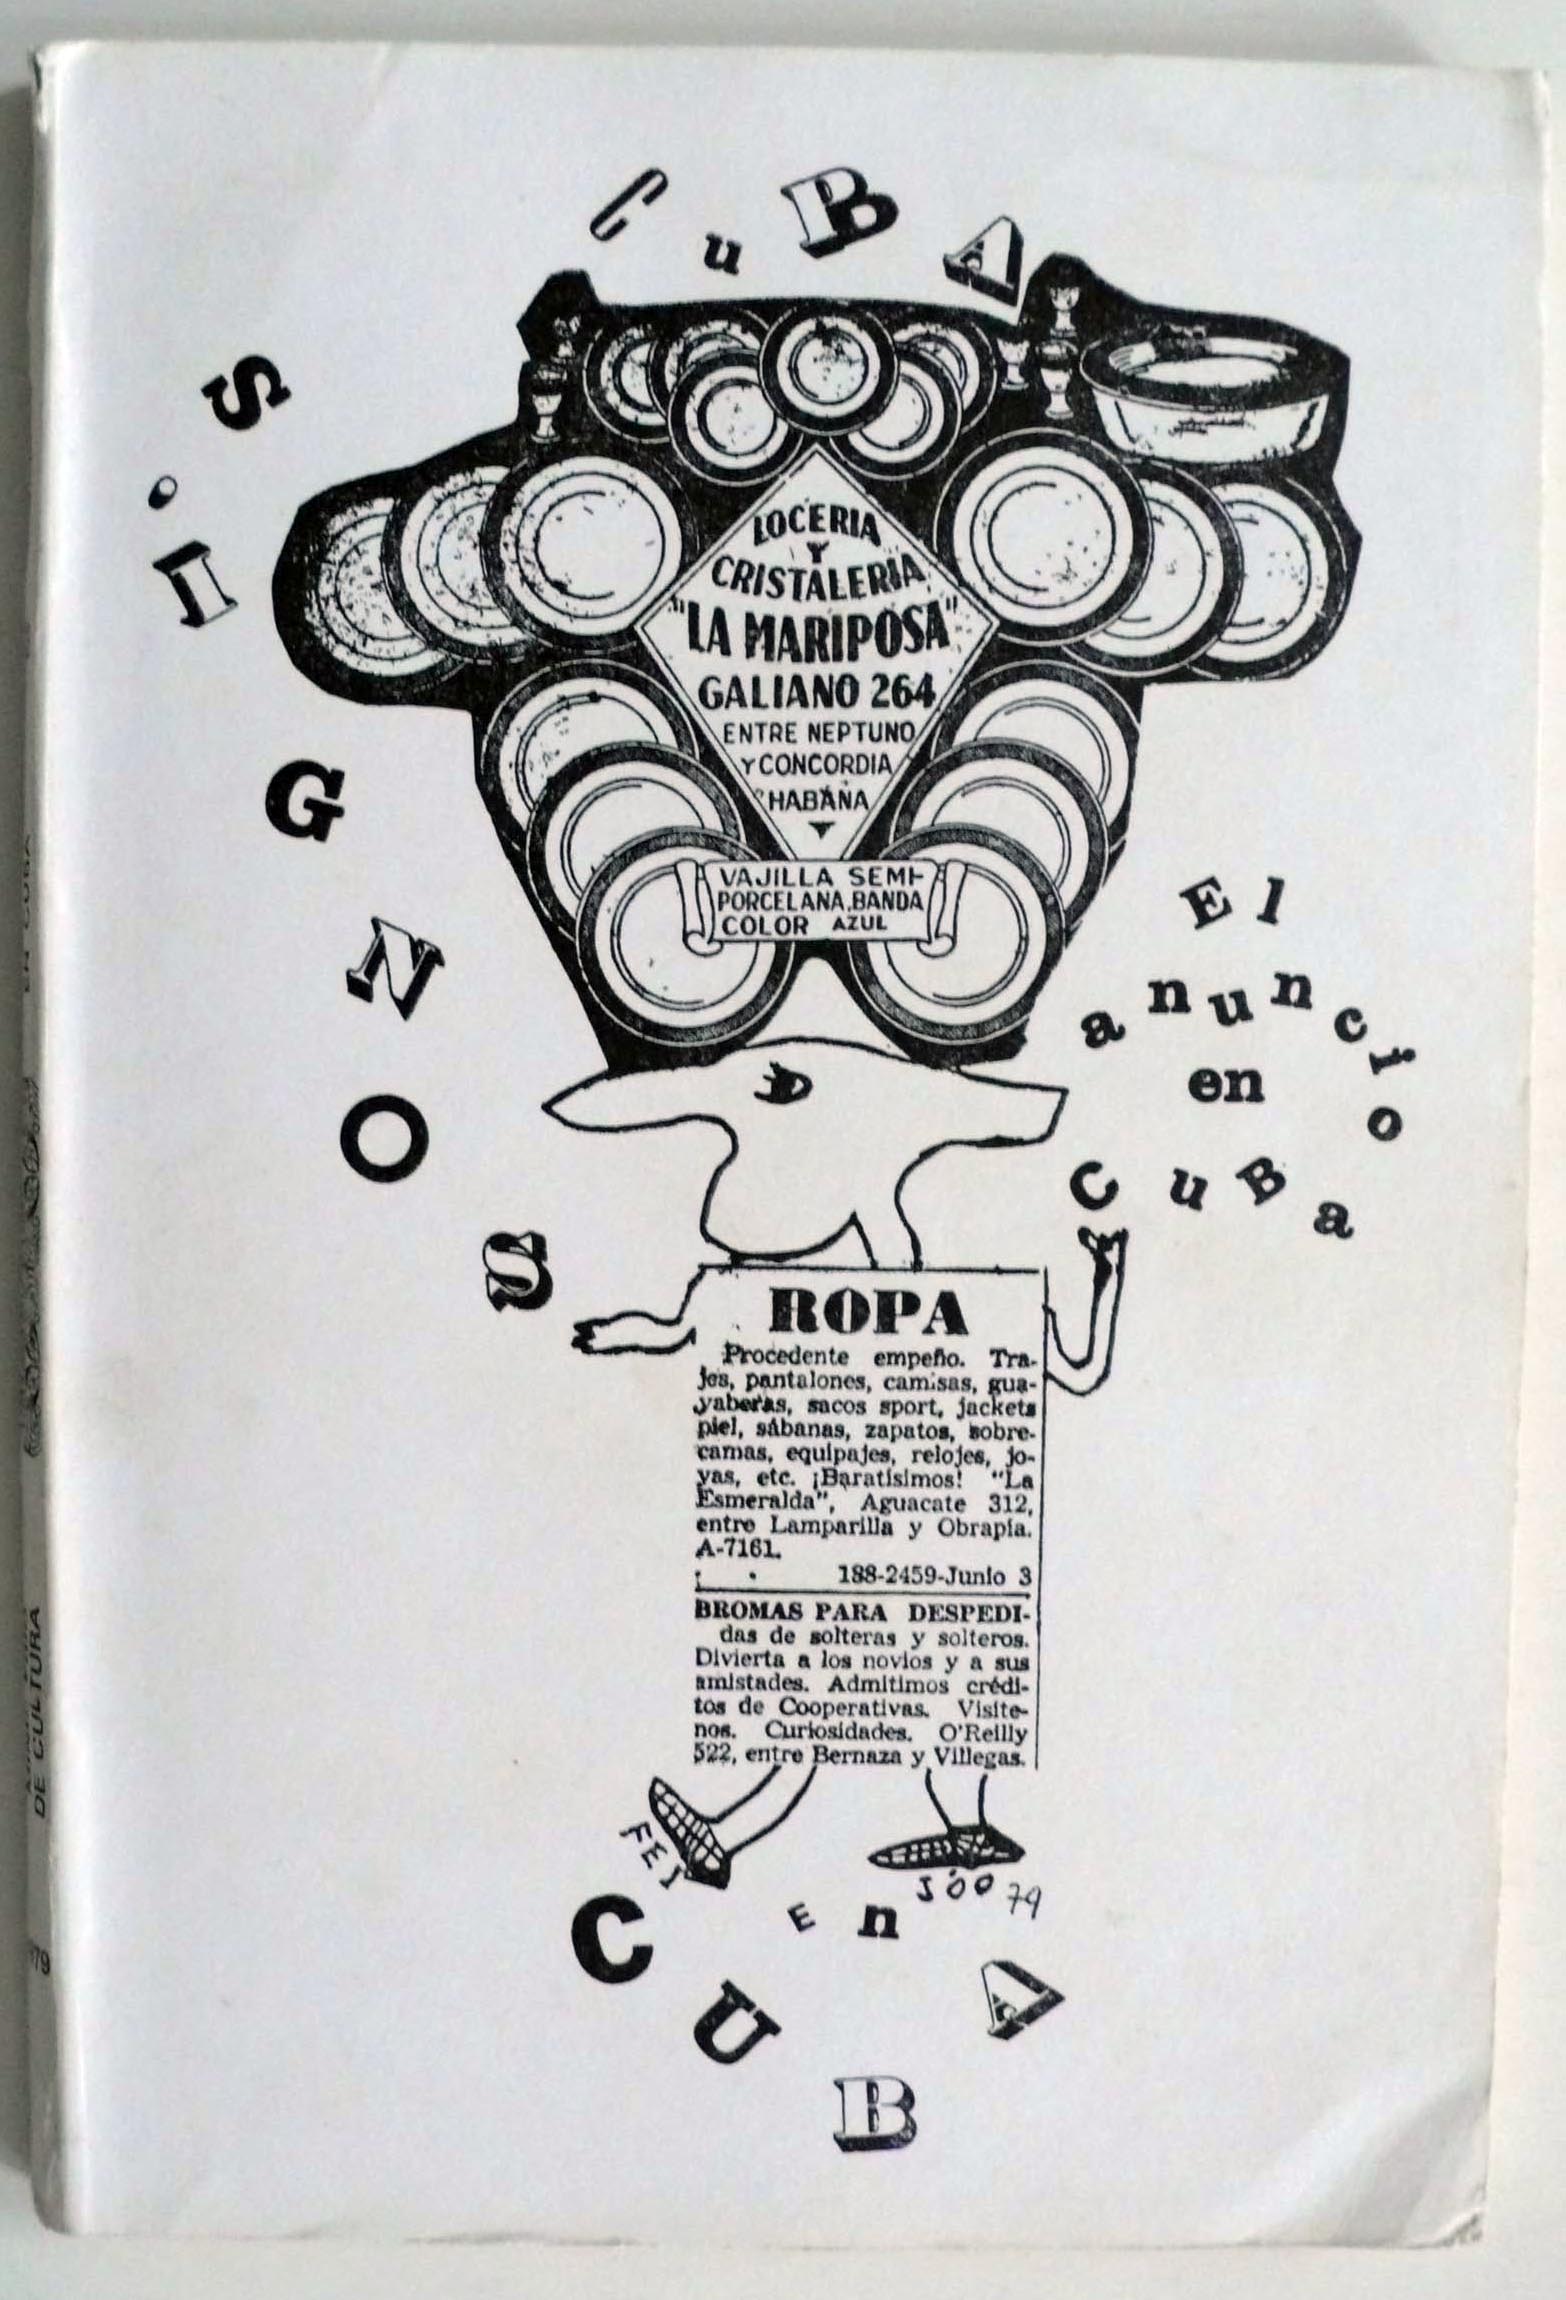 CuBA
SIGNOS
LOCERIA
Y
CRISTALERIA
"LA MARIPOSA"
GALIANO 264
ENTRE NEPTUNO
Y CONCORDIA
HABANA
VAJILLA SEMI-
PORCELANA. BANDA
COLOR AZUL
El
anuncio
en
CuBa
ROPA
Procedente empeño. Tra-
jes, pantalones, camisas, gua-
yaberas, sacos sport, jackets
piel, sábanas, zapatos, sobre-
camas, equipajes, relojes, jo-
yas, etc. ¡Baratísimos! "La
Esmeralda", Aguacate 312,
entre Lamparilla y Obrapía.
A-7161.
188-2459-Junio 3
BROMAS PARA DESPEDI-
das de solteras y solteros.
Divierta a los novios y a sus
amistades. Admitimos crédi-
tos de Cooperativas. Visíte-
nos. Curiosidades. O'Reilly
522, entre Bernaza y Villegas.
FEIJÓO 79
En
CUBA
DE CULTURA